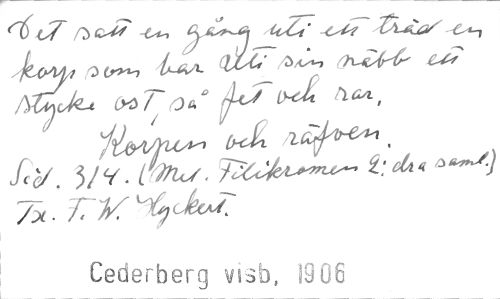 Det satt en gång uti ett träd en
korp som bar uti sin näbb ett
stycke ost, så fet och rar.
Korpen och räfven.
Sid. 314. (Mel. Filikromen 2:dra saml.)
Tx. F. W. Hyckert.
Cederberg visb, 1906